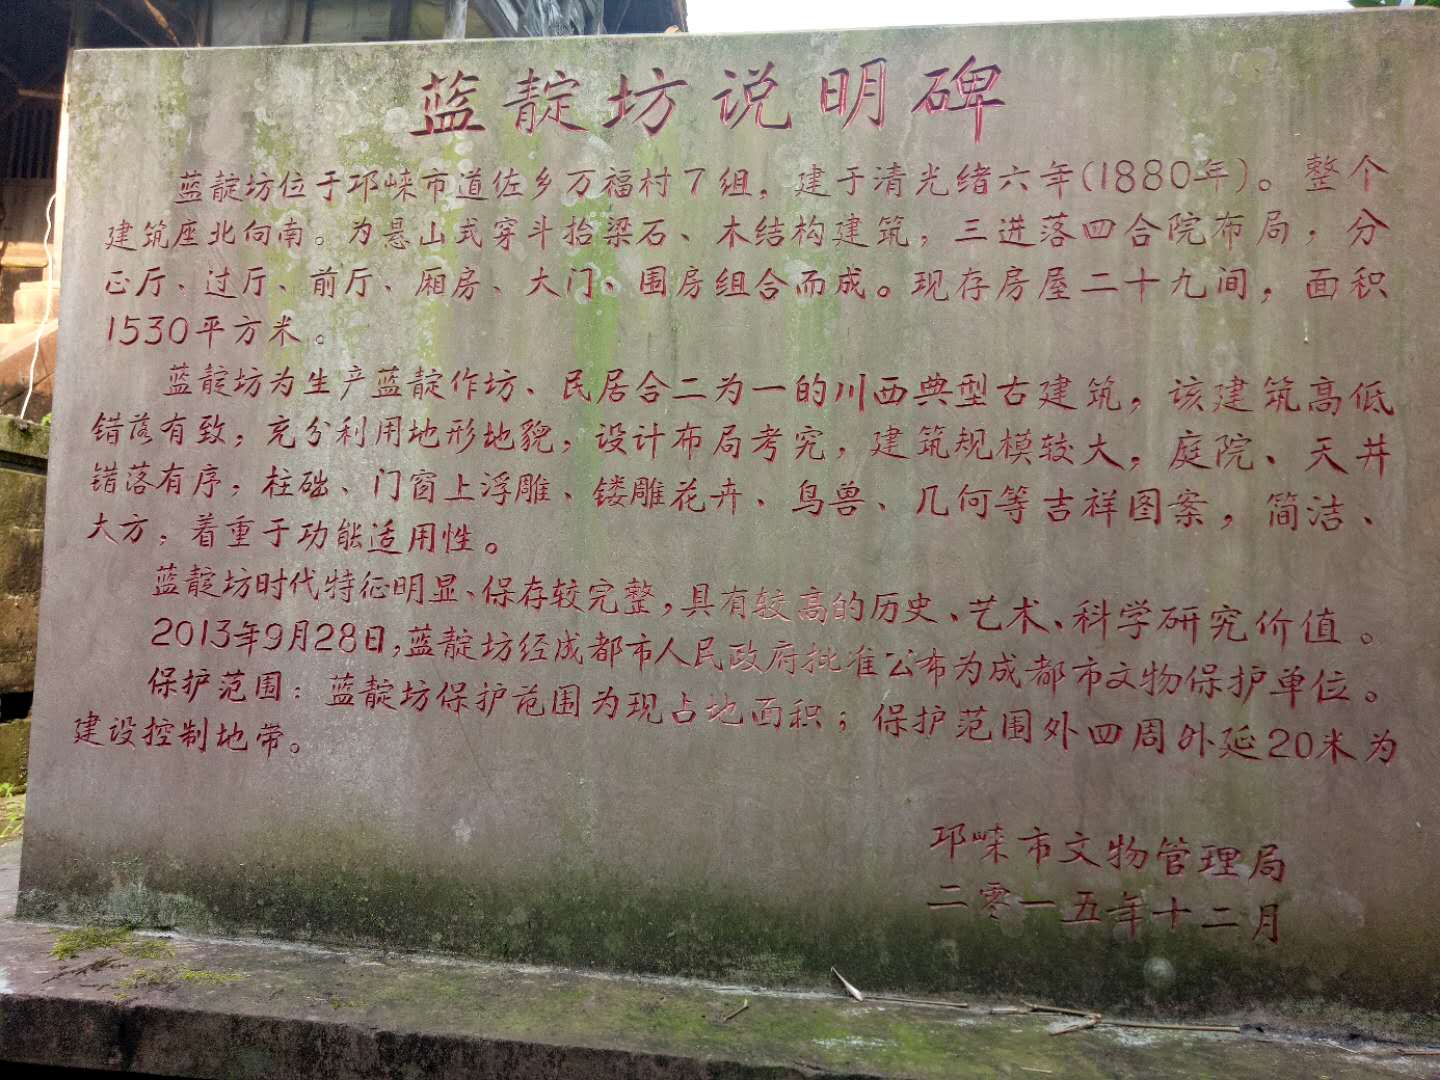 蓝靛坊说明碑
蓝靛坊位于邛崃市道佐乡万福村7组，建于清光绪六年(1880年)。整个
建筑座北向南。为悬山式穿斗抬梁石、木结构建筑，三进落四合院布局，分
正厅、过厅、前厅、厢房、大门、围房组合而成。现存房屋二十九间，面积
1530平方米。
蓝靛坊为生产蓝靛作坊、民居合二为一的川西典型古建筑，该建筑高低
错落有致，充分利用地形地貌，设计布局考究，建筑规模较大，庭院、天井
错落有序，柱础、门窗上浮雕、镂雕花卉、鸟兽、几何等吉祥图案，简洁、
大方，着重于功能适用性。
蓝靛坊时代特征明显、保存较完整，具有较高的历史、艺术、科学研究价值。
2013年9月28日，蓝靛坊经成都市人民政府批准公布为成都市文物保护单位。
保护范围：蓝靛坊保护范围为现占地面积；保护范围外四周外延20米为
建设控制地带。
邛崃市文物管理局
二零一五年十二月